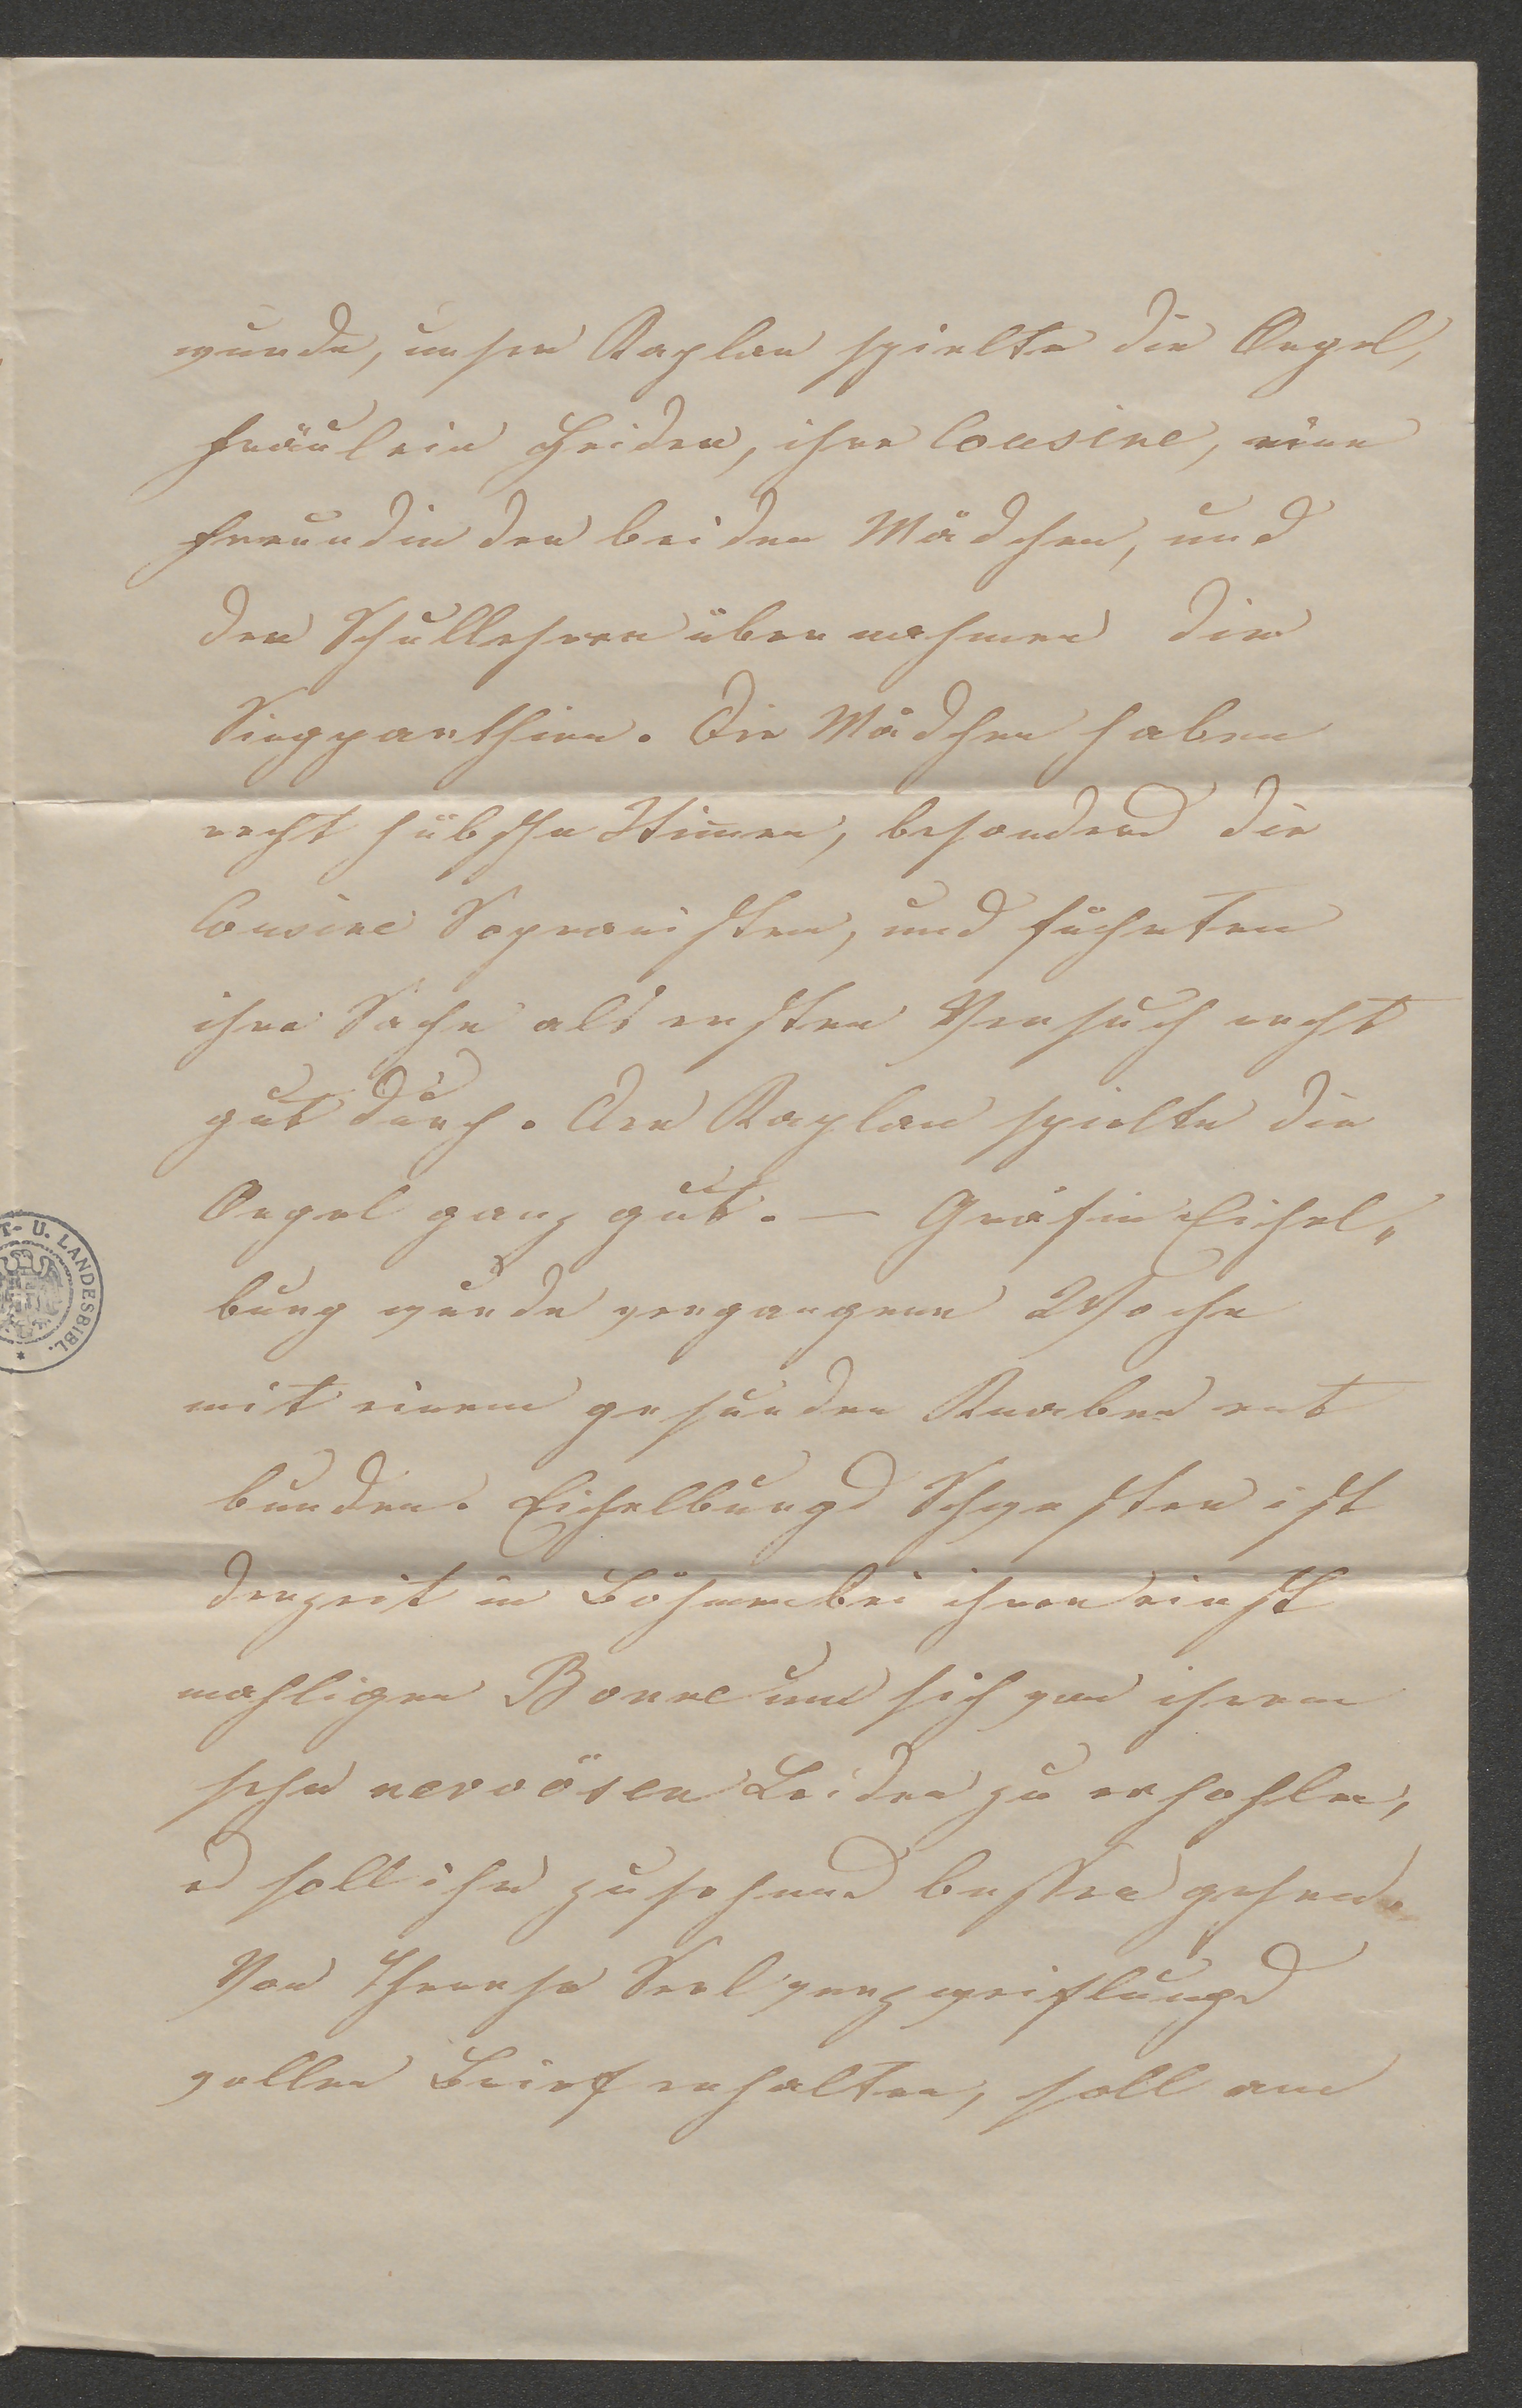 wurde, unser Kaplan spielte die Orgel,
Fräulein Heider, ihre Cousine, eine
Freundin der beiden Mädchen, und
der Schullehrer übernahmen die
Singparthien. Die Mädchen haben
recht hübsche Stim̅en, besonders die
Cousine Sopranisten, und führten
ihre Sache als ersten Versuch recht
gut durch. Der Kaplan spielte die
Orgel ganz gut. — Gräfin Eichel„
burg wurde vergangene Woche
mit einem gesunden Knaben ent
bunden. Eichelburgs Schwester ist
derzeit in Böhmen bei ihrer einst
mahligen Bonne um sich von ihrem
sehr nervösen Leiden zu erhohlen,
es soll ihr zusehens besser gehen.
Von Therese Seel verzweiflungs
vollen Brief erhalten, soll am
T- U. LANDESBIBL.